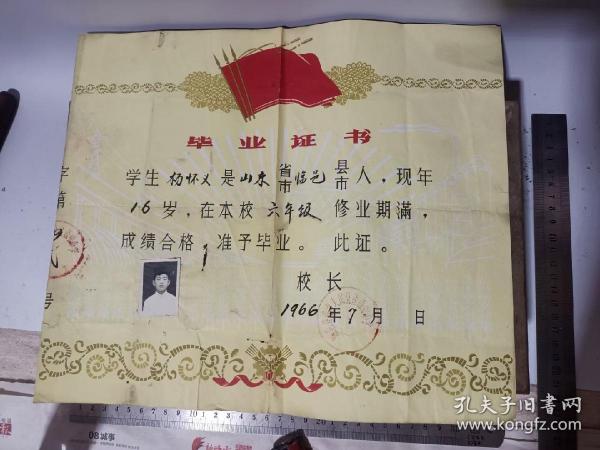 毕业证书
学生 杨怀义 是 山东 省市 临邑 县市 人，现年
16 岁，在本校 六年级 修业期满，
成绩合格，准予毕业。此证。
校长
1966 年 7 月 日
字第
号
08城事
孔夫子旧书网